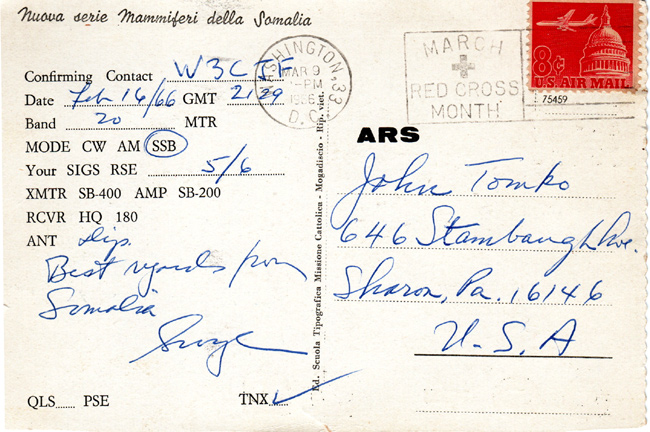 Nuova serie Mammiferi della Somalia
Confirming Contact
Date Feb 16/66 GMT 2129
Band 20 MTR
MODE CW AM SSB
Your SIGS RSE 5/6
XMTR SB-400 AMP SB-200
RCVR HQ 180
ANT Dip.
Best regards from
Somalia
QLS...... PSE TNX ✓
Ed. Scuola Tipografica Missione Cattolica - Mogadiscio - Rip. viet.
WASHINGTON 33
MAR 9
PM
1966
D.C.
MARCH
RED CROSS
MONTH
8¢
U.S. AIR MAIL
75459
ARS
John Tomko
646 Stambaugh Ave.
Sharon, Pa. 16146
U.S.A